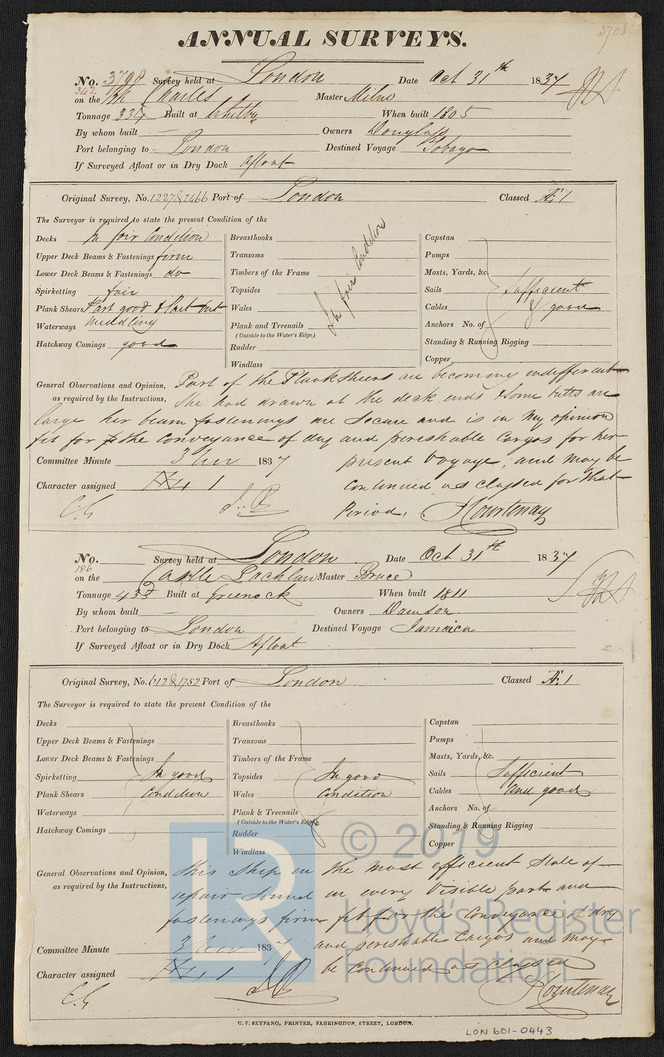 3708
ANNUAL SURVEYS.
No. 3798 Survey held at London Date Oct 31th 1837
342 on the Bk Charles Master Milne
Tonnage 334 Built at Whitby When built 1805
By whom built — Owners Douglass
Port belonging to London Destined Voyage Tobago
If Surveyed Afloat or in Dry Dock afloat
Original Survey, No. 1227 & 2466 Port of London Classed Æ 1
The Surveyor is required to state the present Condition of the
Decks In fair Condition
Upper Deck Beams & Fastenings firm
Lower Deck Beams & Fastenings do
Spirketting fair
Plank Shears Part good & Part but
Waterways middling
Hatchway Comings good
Breasthooks
Transoms
Timbers of the Frame
Topsides
Wales
Plank and Treenails
(Outside to the Water's Edge)
Rudder
Windlass
In fair Condition
Capstan
Pumps
Masts, Yards, &c.
Sails Sufficient
Cables & good
Anchors No. of
Standing & Running Rigging
Copper
General Observations and Opinion, Part of the Plank Sheers are becoming indifferent
as required by the Instructions, She had drawn at the deck ends & some butts are
large her beam fastenings are secure and is in my opinion
fit for the Conveyance of dry and perishable Cargos for her
Committee Minute 3 Nov 1837 present Voyage, and may be
Character assigned Æ 1 Continued as Classed for that
Period, J Courtenay
No. Survey held at London Date Oct 31th 1837
186 on the Castle Lachlan Master Bruce
Tonnage 433 Built at Greenock When built 1811
By whom built — Owners Dawson
Port belonging to London Destined Voyage Jamaica
If Surveyed Afloat or in Dry Dock Afloat
Original Survey, No. 612 & 1752 Port of London Classed Æ 1
The Surveyor is required to state the present Condition of the
Decks
Upper Deck Beams & Fastenings
Lower Deck Beams & Fastenings
Spirketting In good
Plank Shears Condition
Waterways
Hatchway Comings
Breasthooks
Transoms
Timbers of the Frame
Topsides In good
Wales Condition
Plank & Treenails
(Outside to the Water's Edge)
Rudder
Windlass
Capstan
Pumps
Masts, Yards, &c.
Sails Sufficient
Cables and good
Anchors No. of
Standing & Running Rigging
Copper
General Observations and Opinion, This Ship in the most efficient State of
as required by the Instructions, repair sound in every Visible part and
fastenings firm fit for the Conveyance of dry
Committee Minute 3 Nov 1837 and perishable Cargos and may
Character assigned Æ 1 be Continued as Classed
J Courtenay
C. F. SEYFANG, PRINTER, FARRINGDON STREET, LONDON.
LON 601-0443
© 2019
Lloyd's Register
Foundation
LR